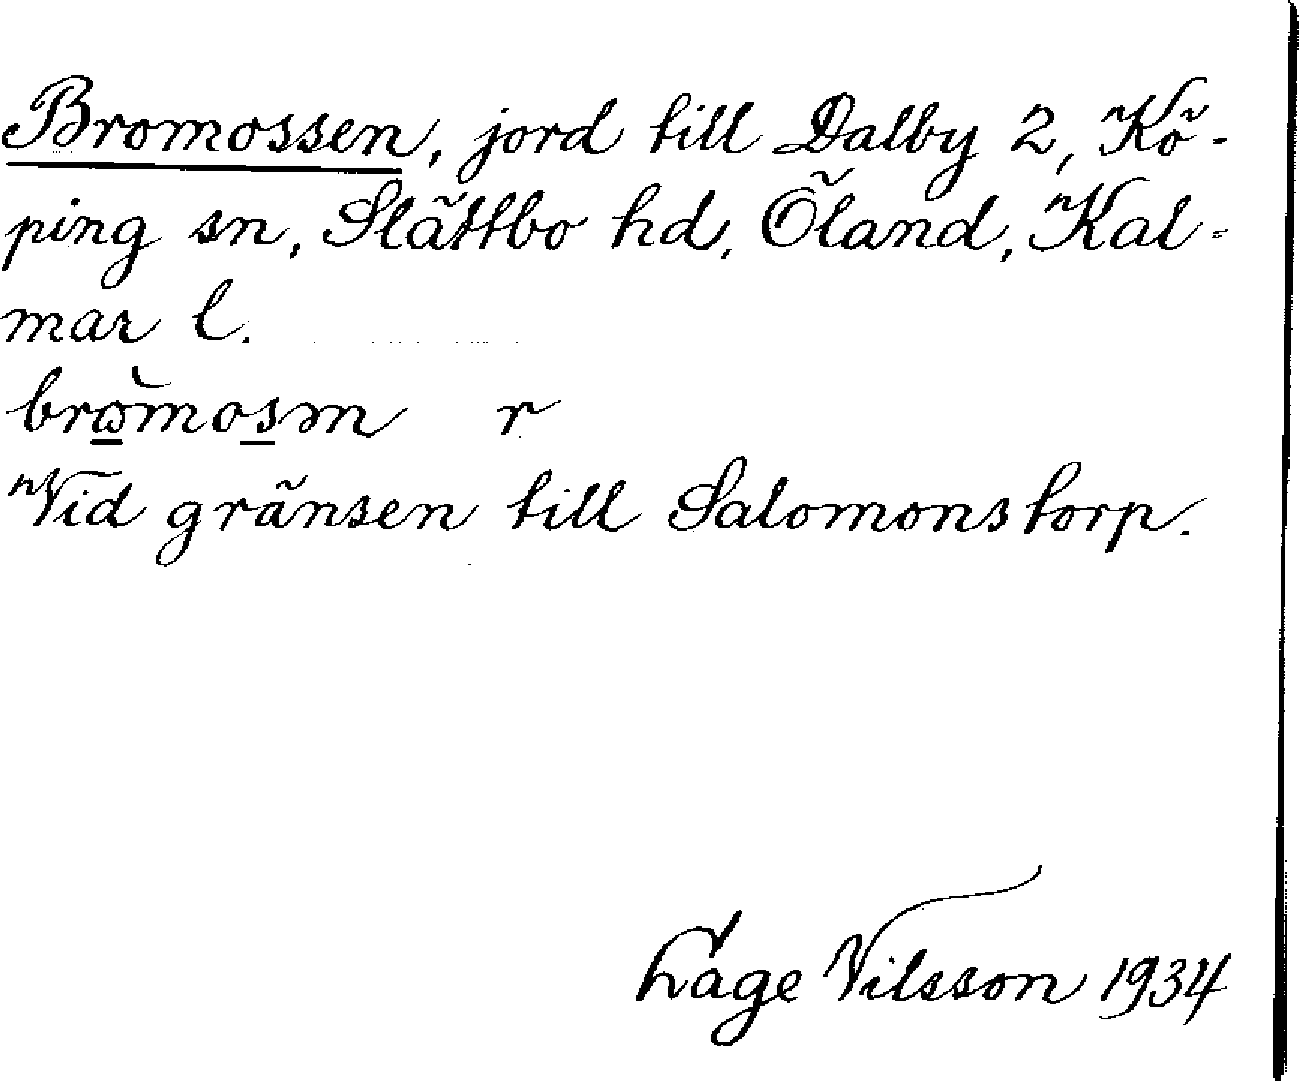 Bromossen, jord till Dalby 2, Kö-
ping sn, Slättbo hd, Öland, Kal-
mar l.
bromosm r
Vid gränsen till Salomonstorp.
Låge Nilsson 1934